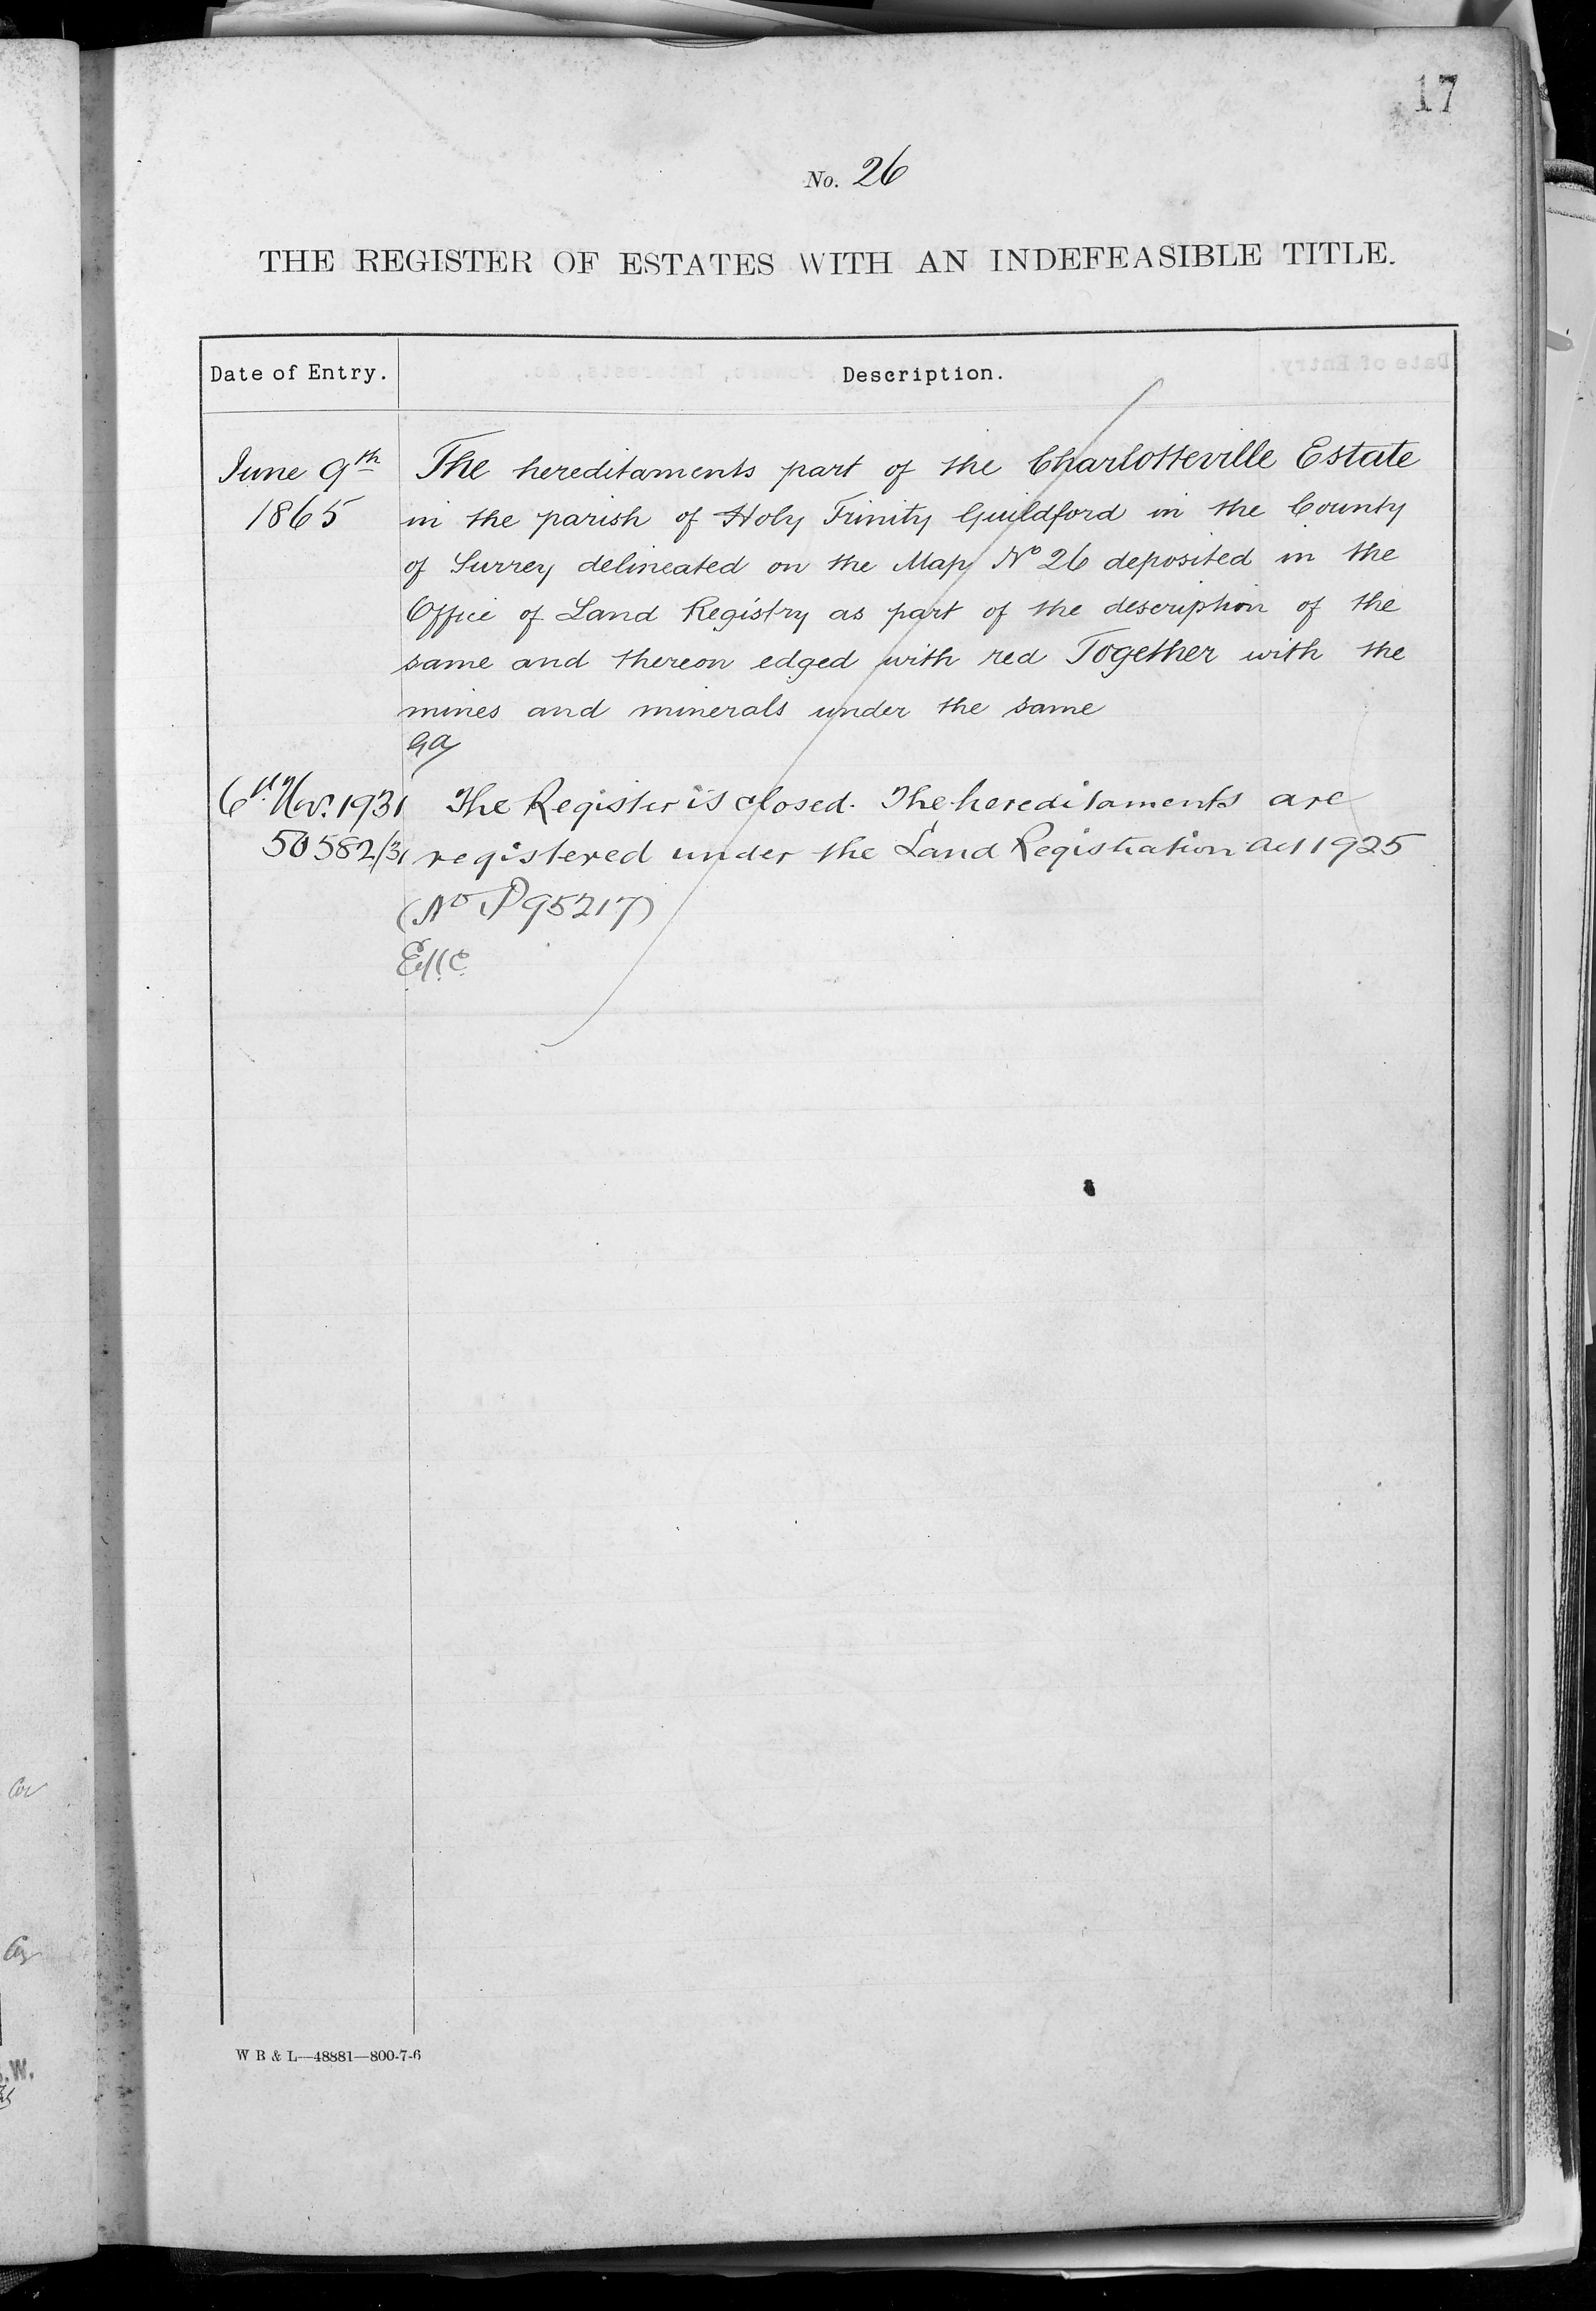 17
No. 26
THE REGISTER OF ESTATES WITH AN INDEFEASIBLE TITLE.
Date of Entry. Description.
June 9th The hereditaments part of the Charlotteville Estate
1865 in the parish of Holy Trinity Guildford in the County
of Surrey delineated on the Map No 26 deposited in the
Office of Land Registry as part of the description of the
same and thereon edged with red Together with the
mines and minerals under the same
6th Nov. 1931 The Register is closed. The hereditaments are
50582/31 registered under the Land Registration Act 1925
(No P95217)
W B & L—48881—800-7-6
.W.